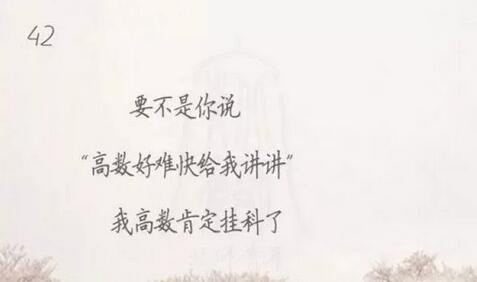 42
要不是你说
“高数好难快给我讲讲”
我高数肯定挂科了